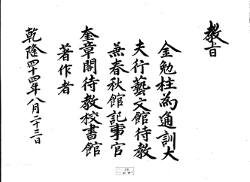 教旨
金勉柱爲通訓大
夫行藝文館待教
兼春秋館記事官
奎章閣待教校書館
著作者
乾隆四十四年八月二十三日